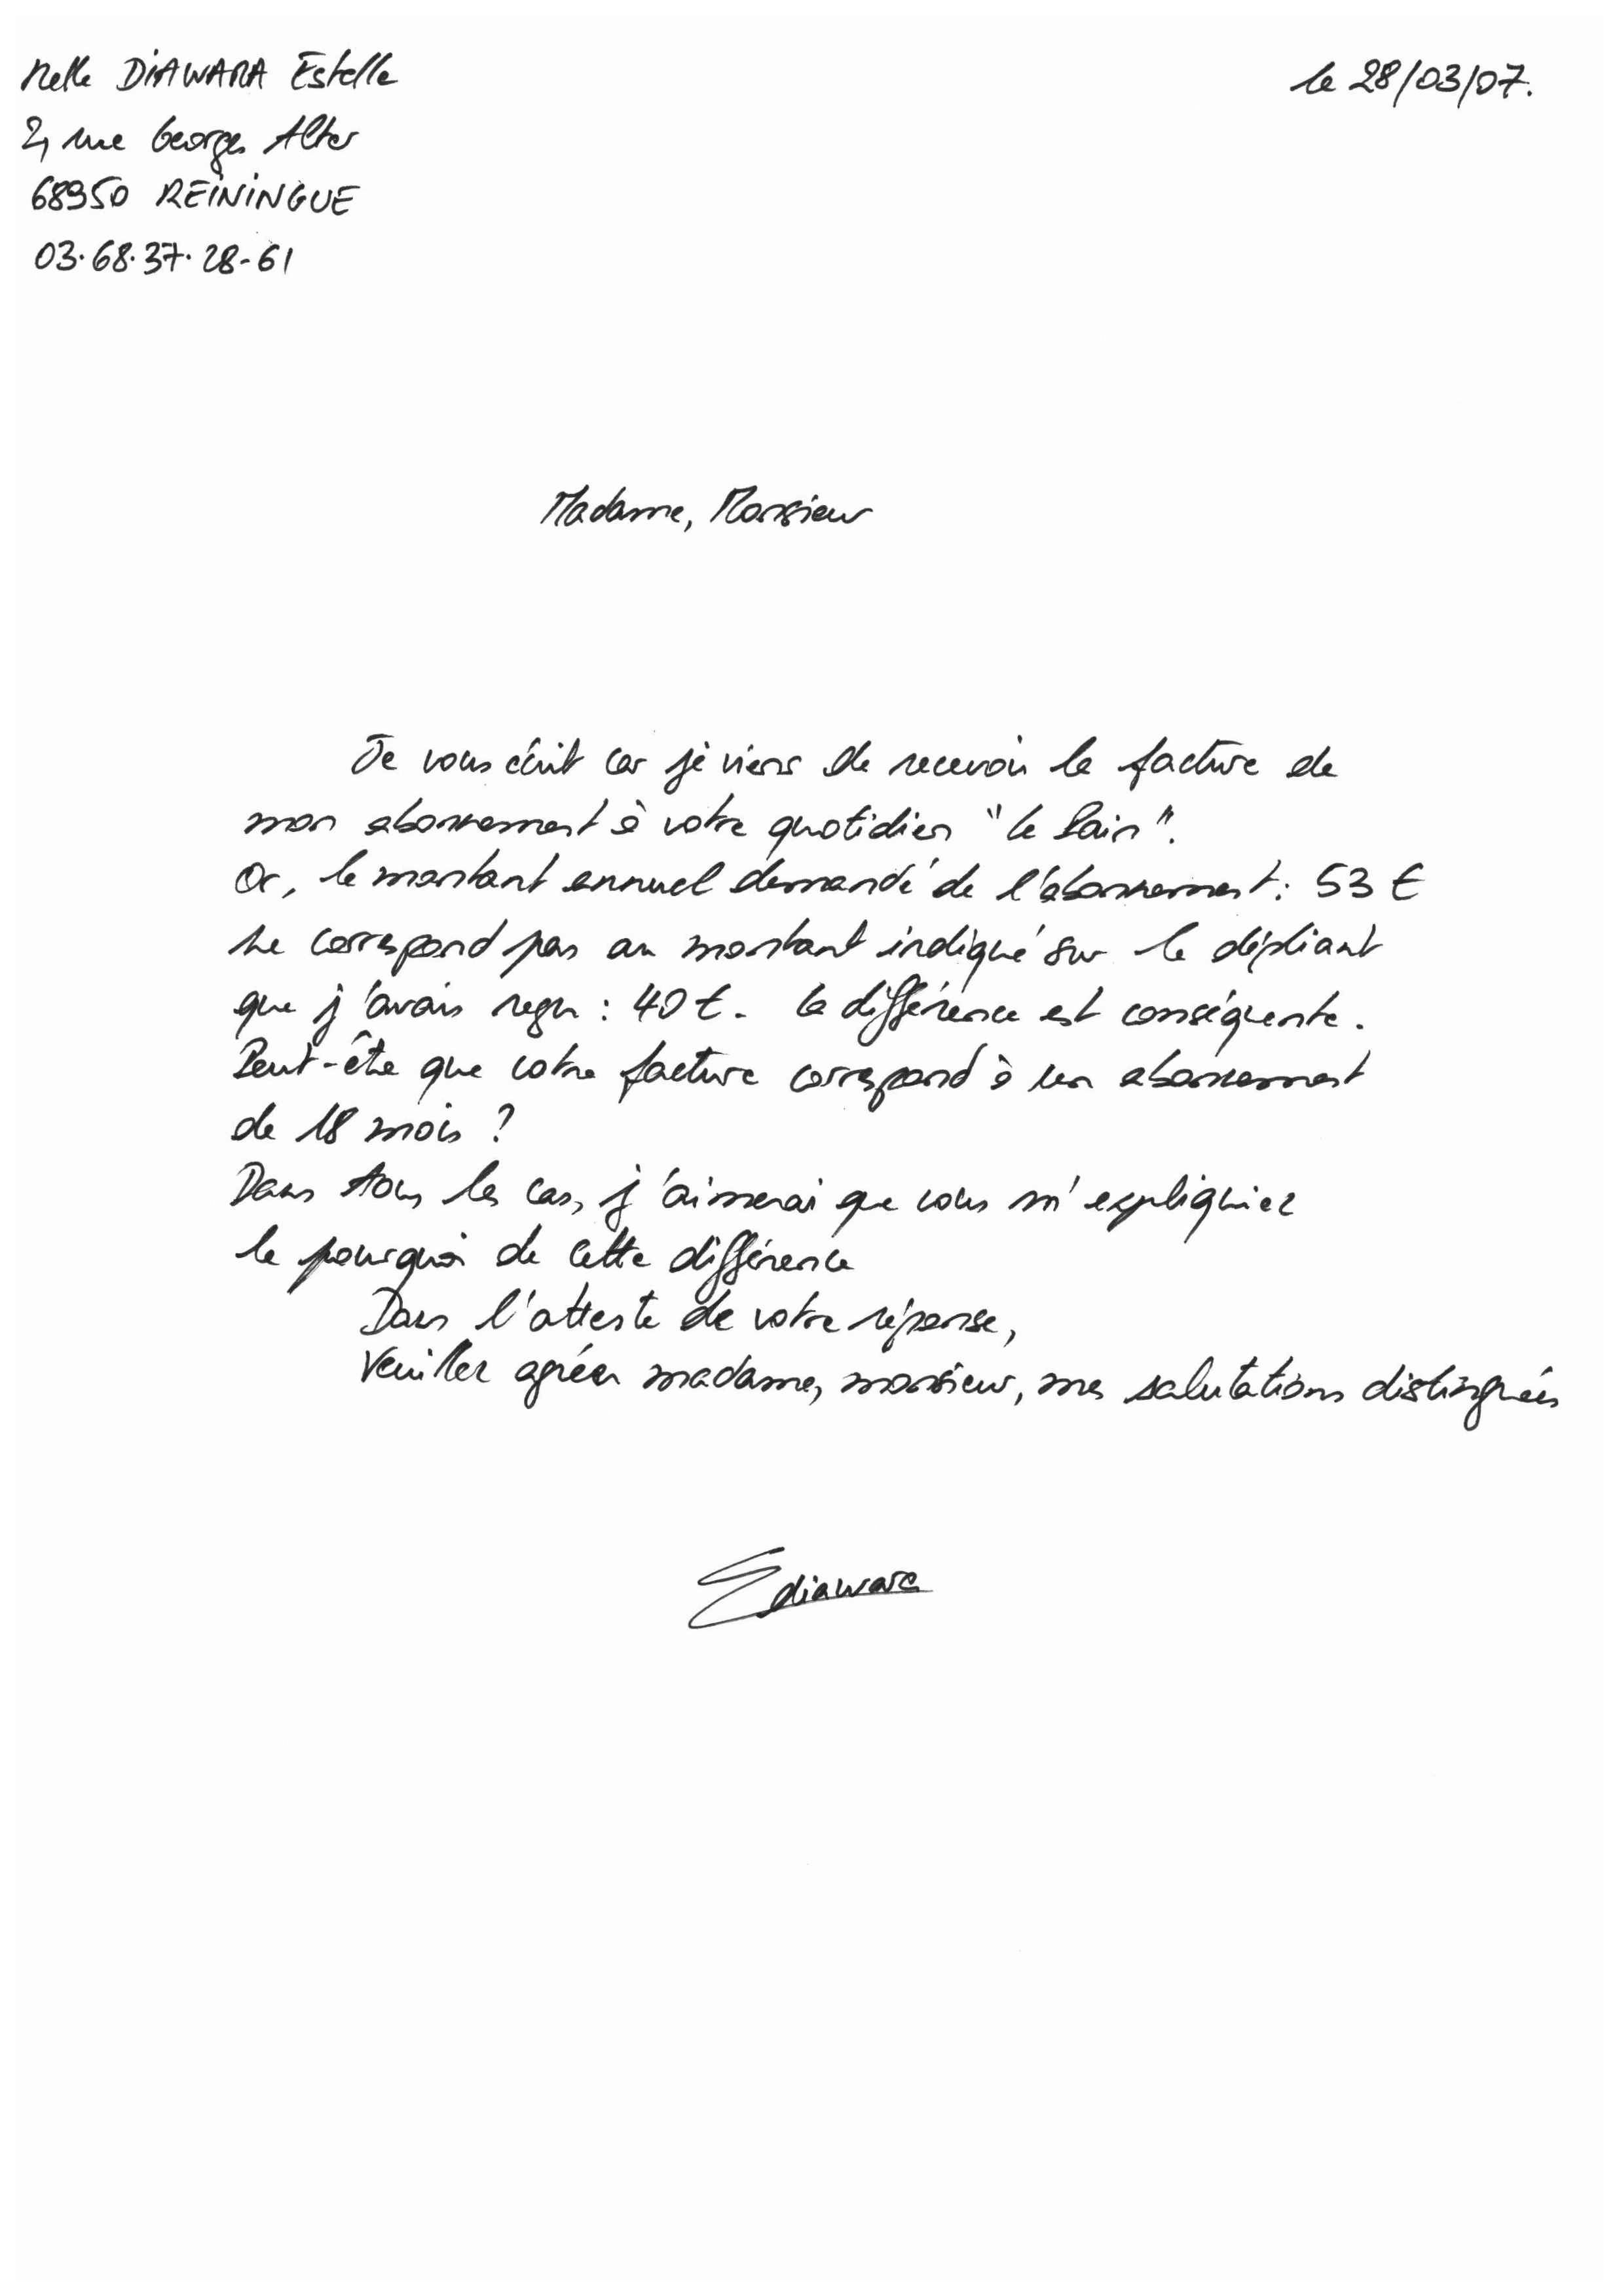 Melle DIAWARA Estelle
le 28/03/07.
2, rue Georges Alter
68950 REININGUE
03.68.37.28-61
Madame, Monsieur
Je vous écrit car je viens de recevoir la facture de
mon abonnement à votre quotidien "le Pain".
Or, le montant annuel demandé de l'abonnement : 53 €
ne correspond pas au montant indiqué sur le dépliant
que j'avais reçu : 40 €. la différence est conséquente.
Peut-être que votre facture correspond à un abonnement
de 18 mois ?
Dans tous les cas, j'aimerai que vous m'expliquiez
le pourquoi de cette différence
Dans l'attente de votre réponse,
Veuiller agréer madame, monsieur, mes salutations distinguées
Ediawara